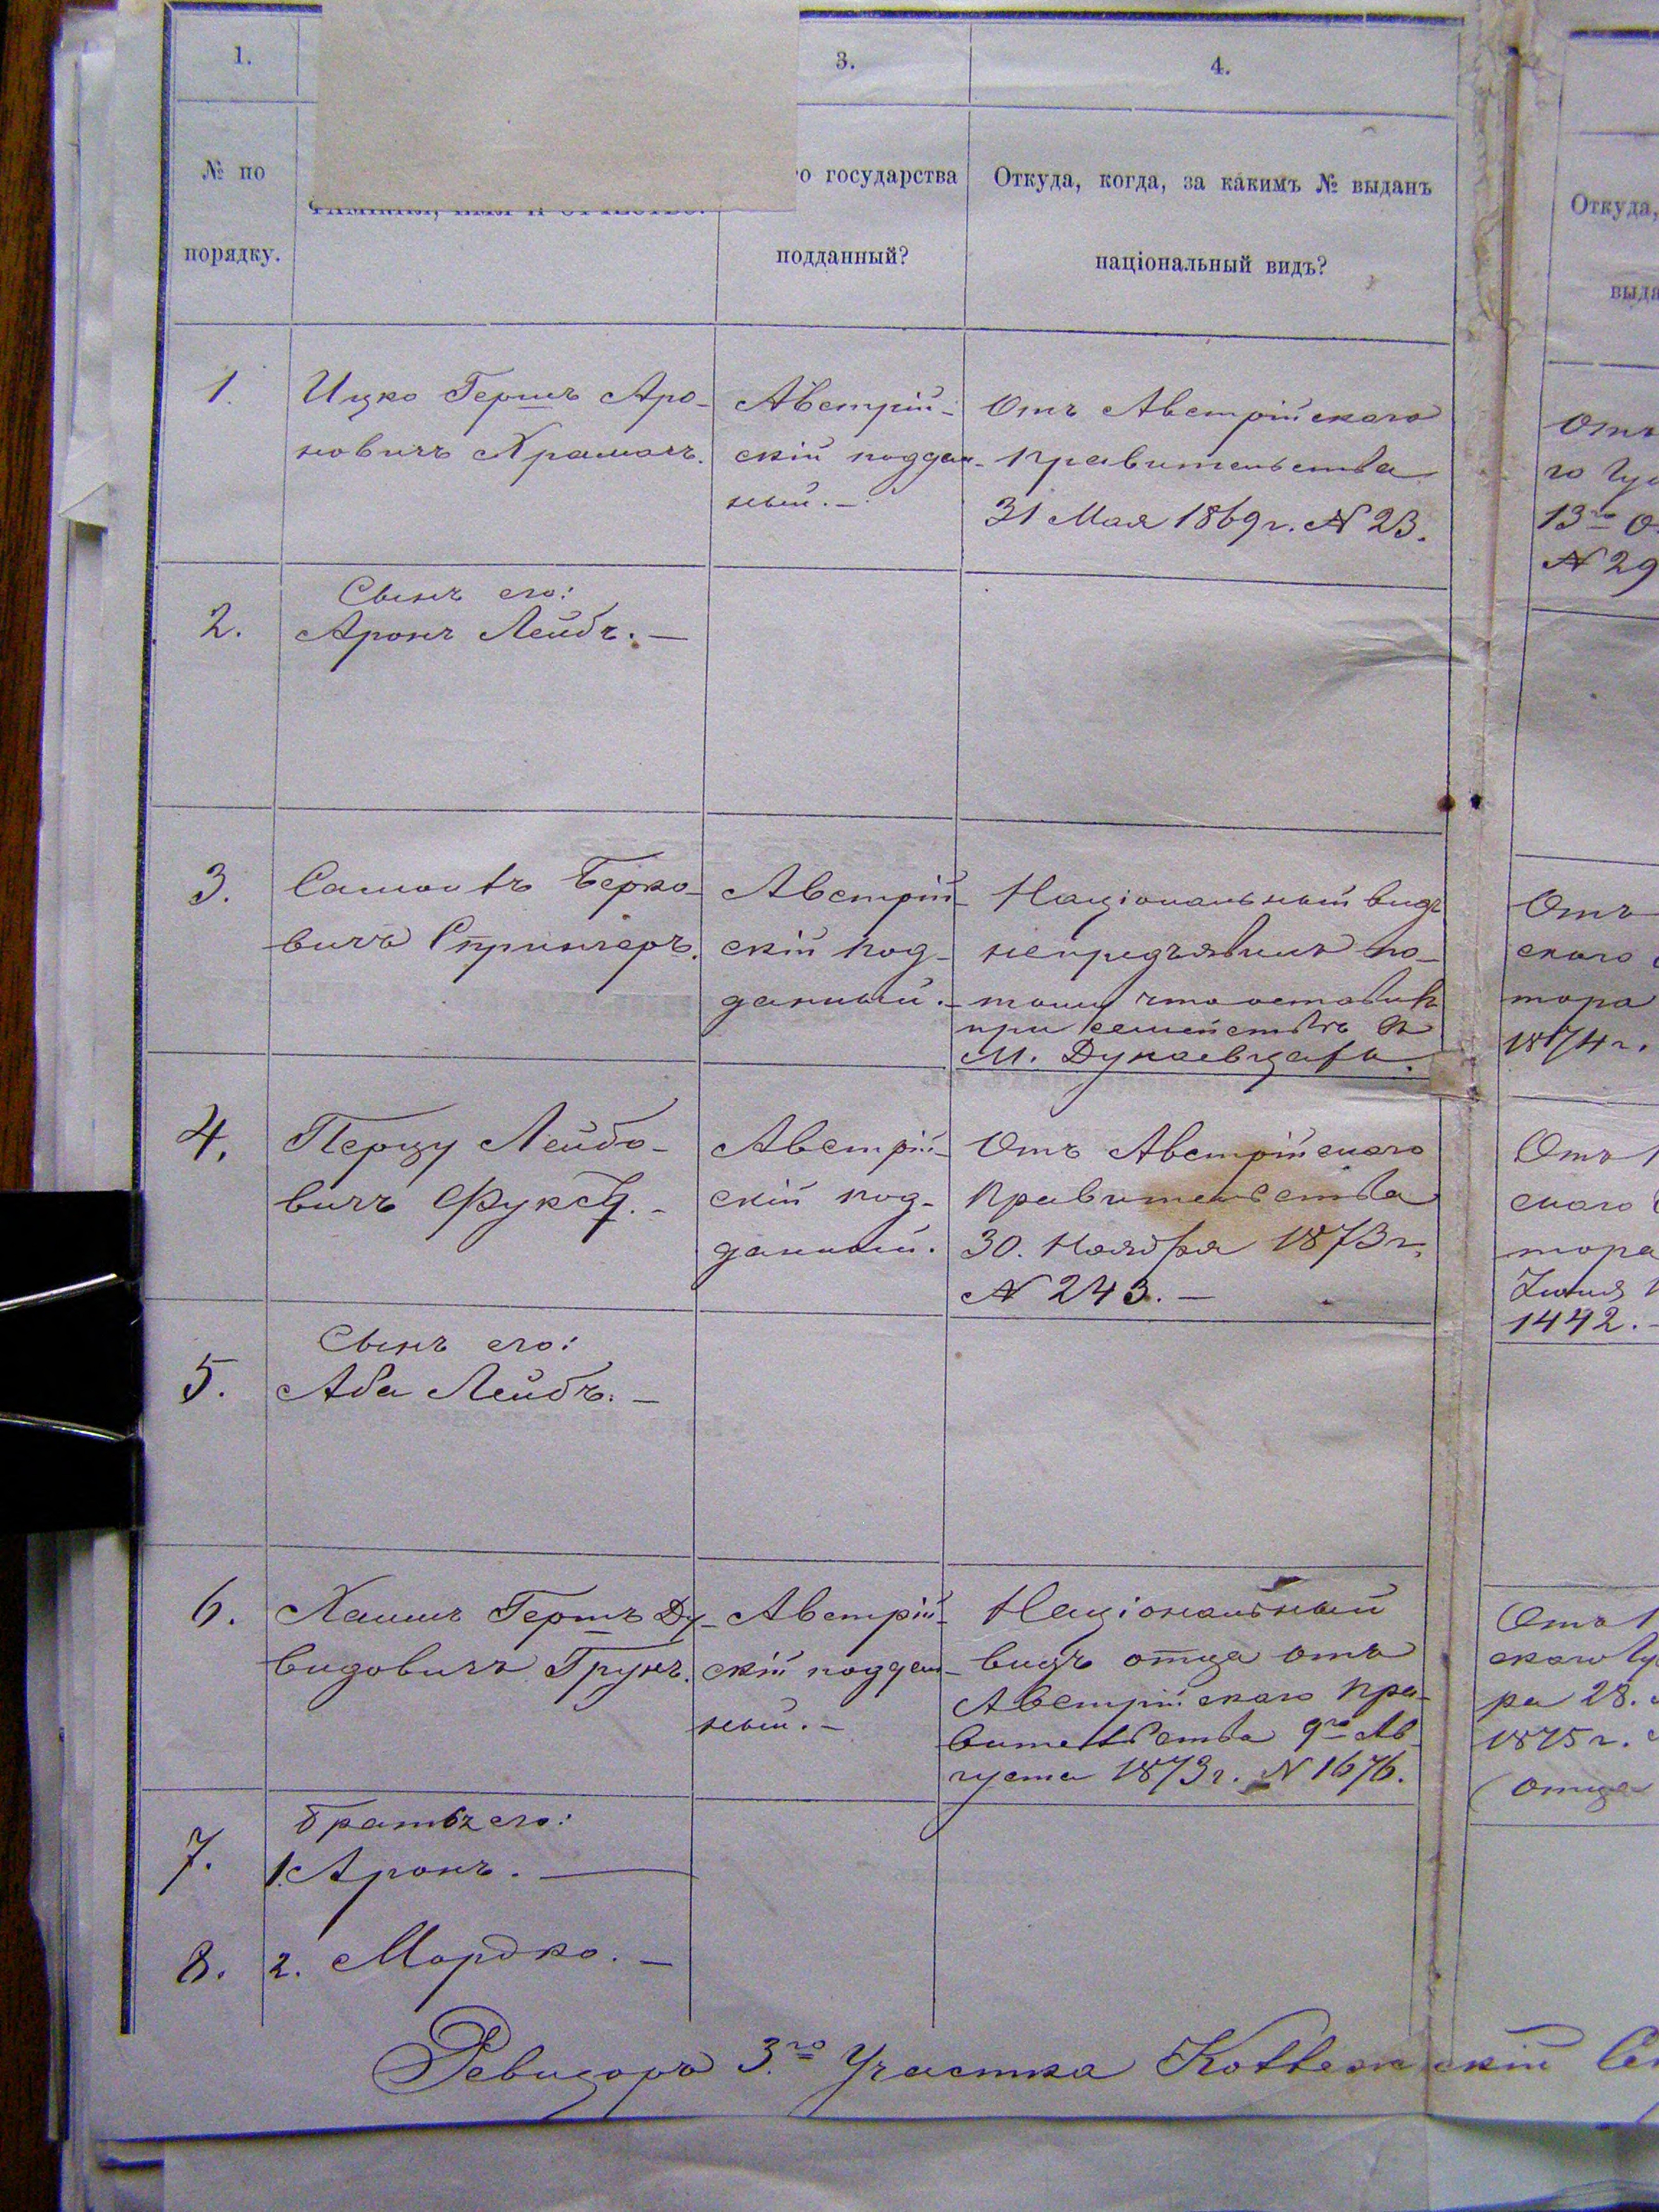 1.
3.
4.
№ по
порядку.
фамилія, имя и отчество.
о государства
подданный?
Откуда, когда, за какимъ № выданъ
національный видъ?
Откуда,
выда
1.
Ицко Гершъ Аро-
новичъ Крамаръ.
Австрій-
скій поддан-
ный. —
Отъ Австрійскаго
Правительства
31 Мая 1869 г. № 23.
Отъ
13го
№ 29
2.
Сынъ его:
Аронъ Лейбъ. —
3.
Берко-
вичъ Спрингеръ.
Австрій-
скій под-
данный. —
Національный видъ
непредъявилъ по-
тому что оставилъ
при семействѣ въ
М. Дунаевцахъ.
Отъ
скаго
тора
1874 г.
4.
Перцу Лейбо-
вичъ Фуксъ. —
Австрій-
скій под-
данный.
Отъ Австрійскаго
Правительства
30. Ноября 1873 г.
№ 243. —
Отъ
скаго
тора
1442. —
5.
Сынъ его:
Аба Лейбъ. —
6.
Хаимъ Гершъ Ду-
видовичъ Грунъ.
Австрій-
скій поддан-
ный. —
Національный
видъ отца отъ
Австрійскаго Пра-
вительства 9го Ав-
густа 1873 г. № 1676.
Отъ
скаго
ра 28.
1875 г.
(отца
Братья его:
7.
1. Аронъ. —
8.
2. Мордко. —
Ревизоръ 3.го Участка